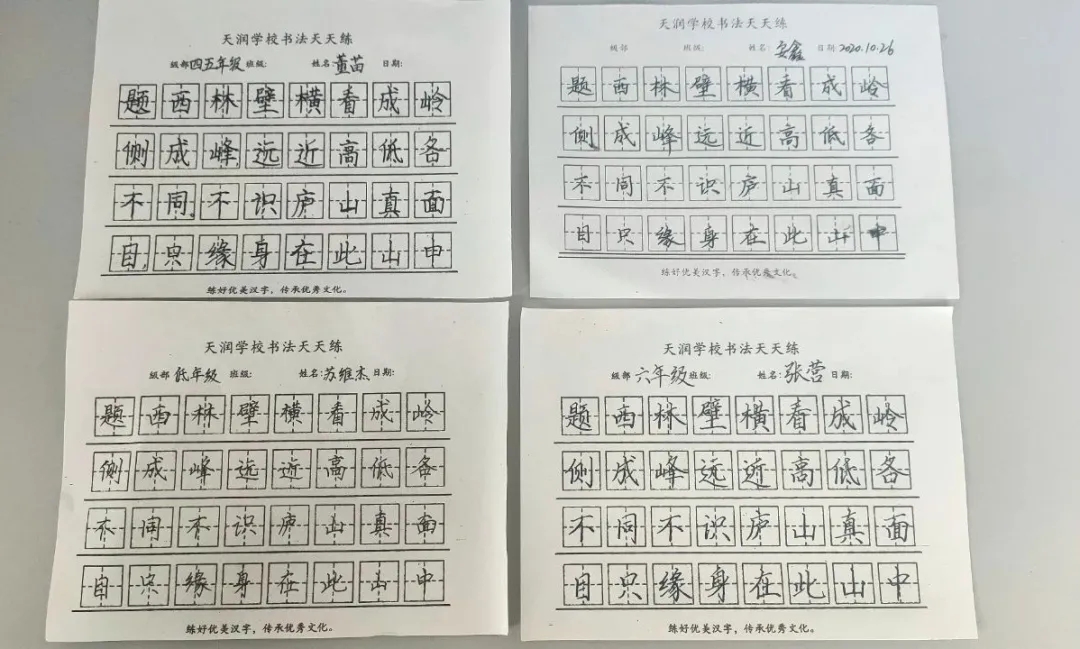 天润学校书法天天练
级部 四五年级 班级: 姓名: 董苗 日期:
题西林壁横看成岭
侧成峰远近高低各
不同不识庐山真面
目只缘身在此山中
练好优美汉字，传承优秀文化。
天润学校书法天天练
级部 班级: 姓名: 安鑫 日期: 2020.10.26
题西林壁横看成岭
侧成峰远近高低各
不同不识庐山真面
目只缘身在此山中
练好优美汉字，传承优秀文化。
天润学校书法天天练
级部 低年级 班级: 姓名: 苏维杰 日期:
题西林壁横看成岭
侧成峰远近高低各
不同不识庐山真面
目只缘身在此山中
练好优美汉字，传承优秀文化。
天润学校书法天天练
级部 六年级 班级: 姓名: 张营 日期:
题西林壁横看成岭
侧成峰远近高低各
不同不识庐山真面
目只缘身在此山中
练好优美汉字，传承优秀文化。